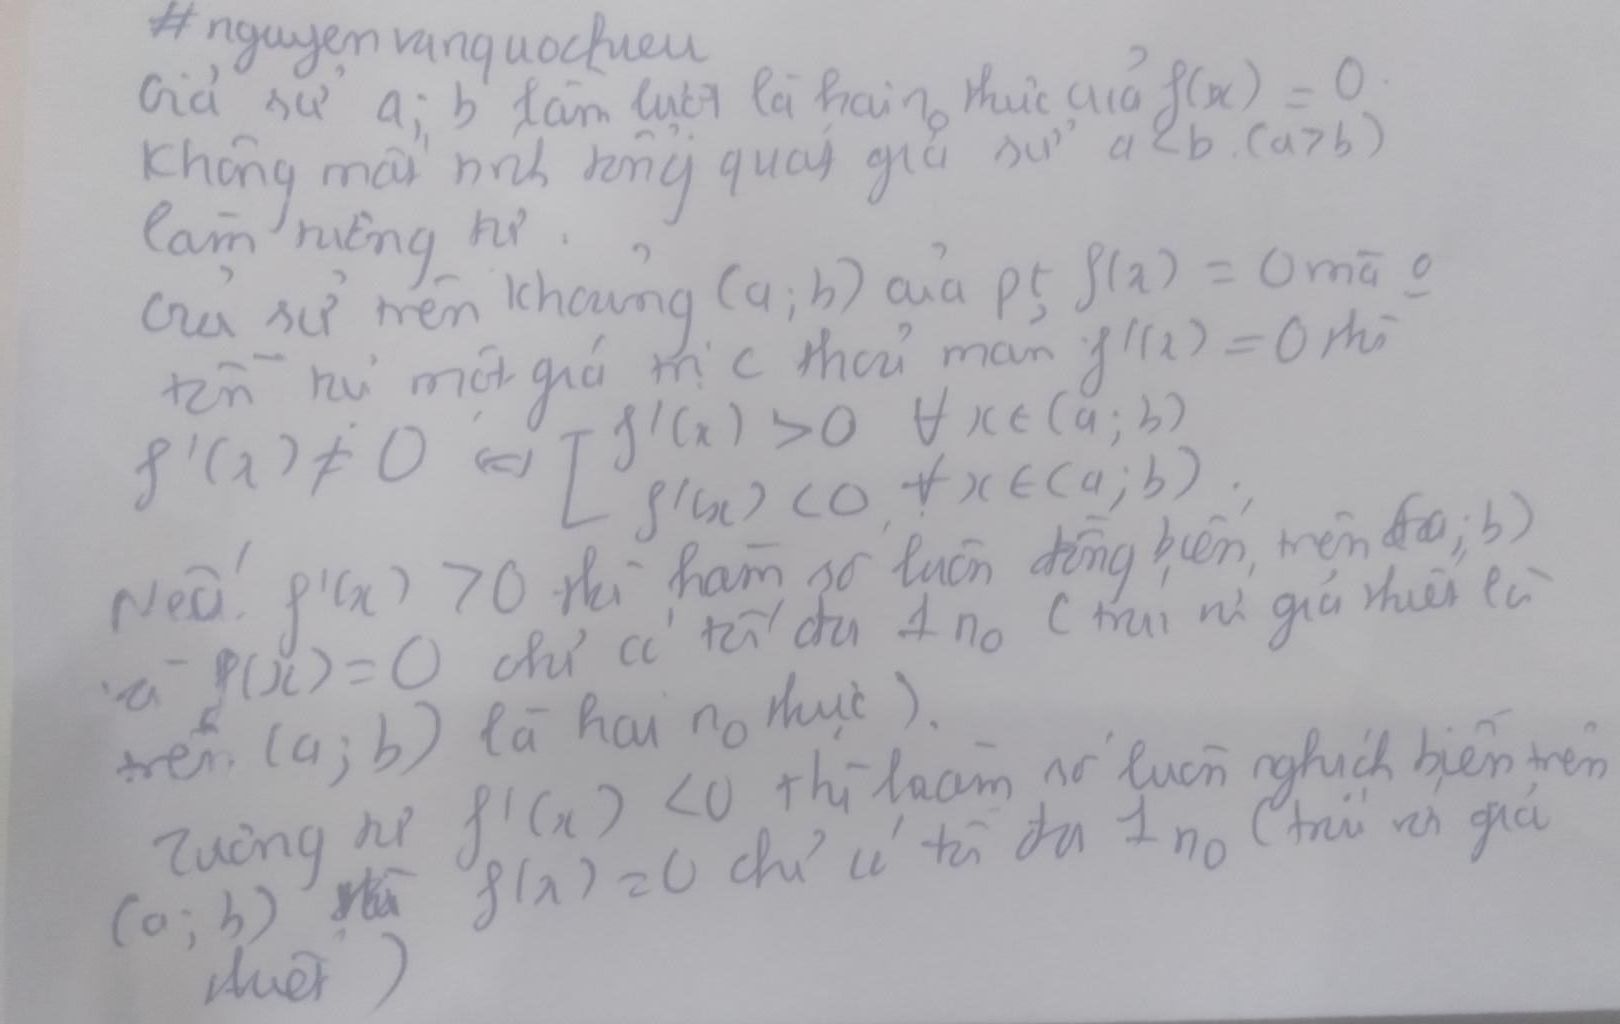 #nguyenvanquochieu
Giả sử a; b lần lượt là hai n₀ thực của f(x) = 0.
Không mất tính tổng quát giả sử a < b. (a > b)
làm tương tự.
Giả sử trên khoảng (a; b) của pt f(x) = 0 mà o
tồn tại một giá trị c thoả mãn f'(x) = 0 thì
f'(x) ≠ 0 ⇔ [ f'(x) > 0 ∀ x ∈ (a; b)
f'(x) < 0, ∀ x ∈ (a; b).
Nếu f'(x) > 0 thì hàm số luôn đồng biến trên (a; b)
và f(x) = 0 chỉ có tối đa 1 n₀ (trái với giả thiết là
trên (a; b) là hai n₀ thực).
Tương tự f'(x) < 0 thì hàm số luôn nghịch biến trên
(a; b) f(x) = 0 chỉ có tối đa 1 n₀ (trái với giả
thiết)